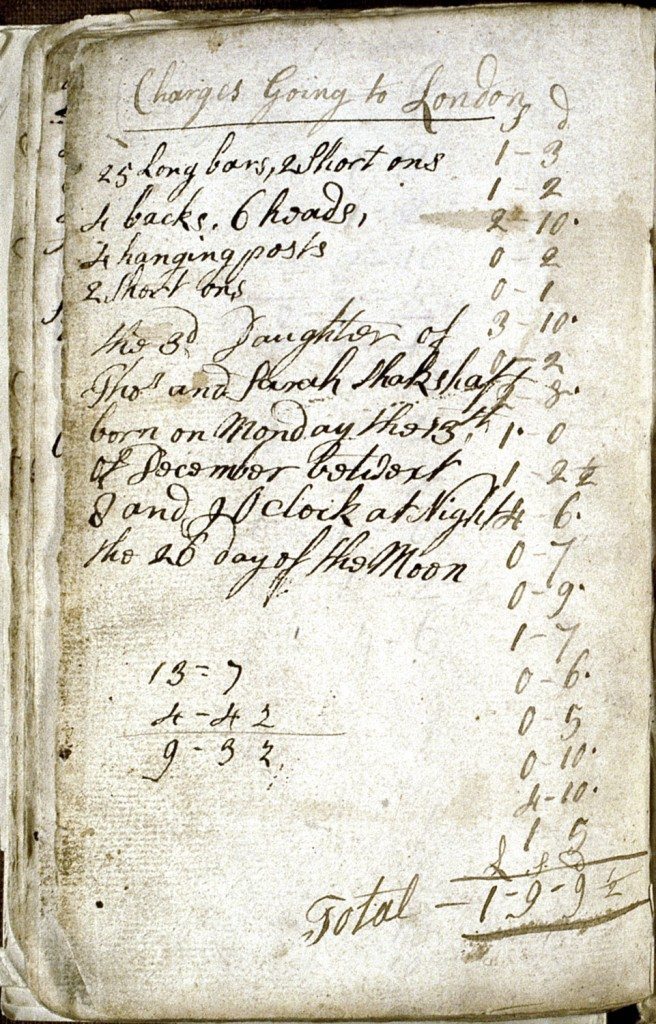 Charges Going to London
s d
25 Long bars, 2 Short ons 1 - 3
1 - 2
4 backs, 6 heads, 2 - 10
4 hanging posts 0 - 2
2 Short ons 0 - 1
the 3d Daughter of 3 - 10
0 - 2
Thos and Sarah Shakshaft - 8
born on Monday the 13th 1 - 0
of December betwext 1 - 2 ½
8 and 9 O clock at Night 4 - 6
the 26 day of the Moon 0 - 7
0 - 9
1 - 7
13 = 7 0 - 6
4 - 4 2 0 - 5
9 - 3 2 0 - 10
4 - 10
1 5
£ s d
Total - 1 - 9 - 9 ½